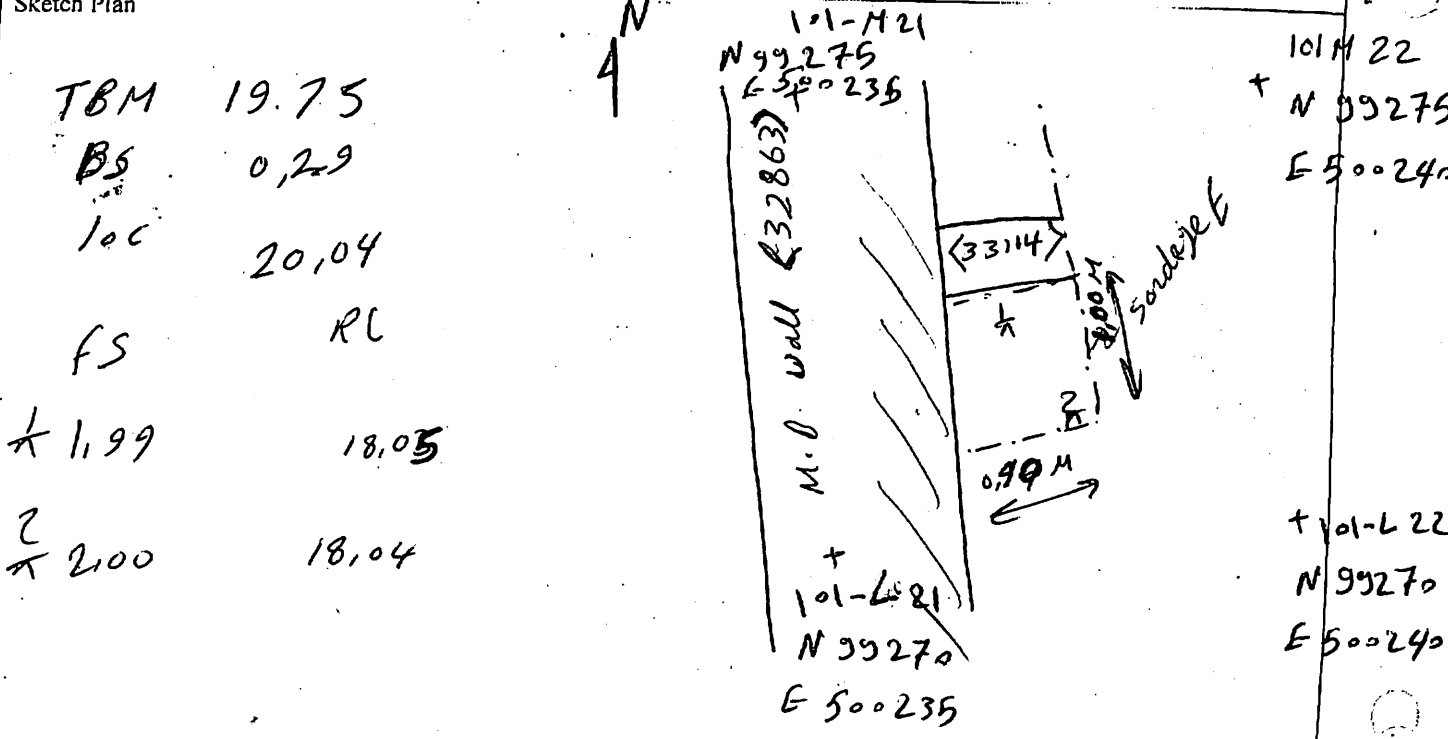 Sketch Plan
N
TBM 19.75
BS 0,29
loc 20,04
FS RL
1/⊼ 1,99 18,05
2/⊼ 2,00 18,04
101-M21
N 99275
E 500235
M.B wall (32863)
<33114>
1/⊼
2/⊼
sondaje E
+
101-L21
N 99270
E 500235
101 M 22
+ N 99275
E 500240
+ 101-L 22
N 99270
E 500240